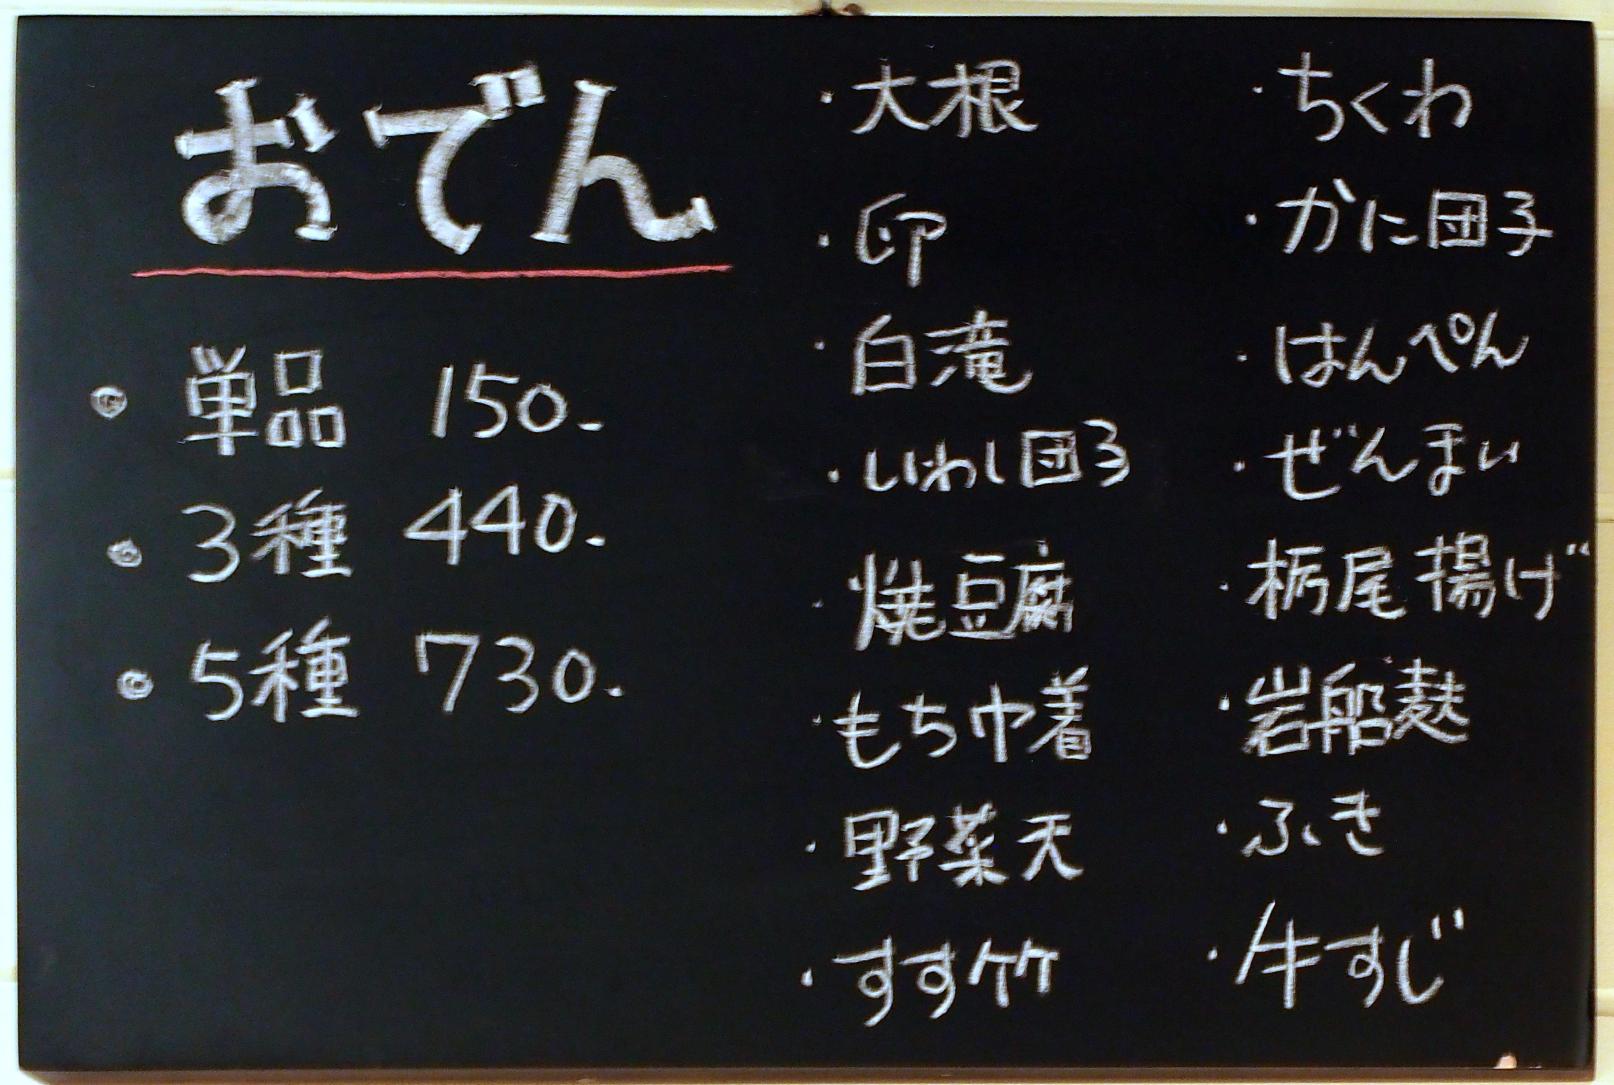 おでん
単品 150.-
3種 440.-
5種 730.-
・大根
・卵
・白滝
・いわし団子
・焼豆腐
・もち巾着
・野菜天
・すす竹
・ちくわ
・かに団子
・はんぺん
・ぜんまい
・栃尾揚げ
・岩船麩
・ふき
・牛すじ